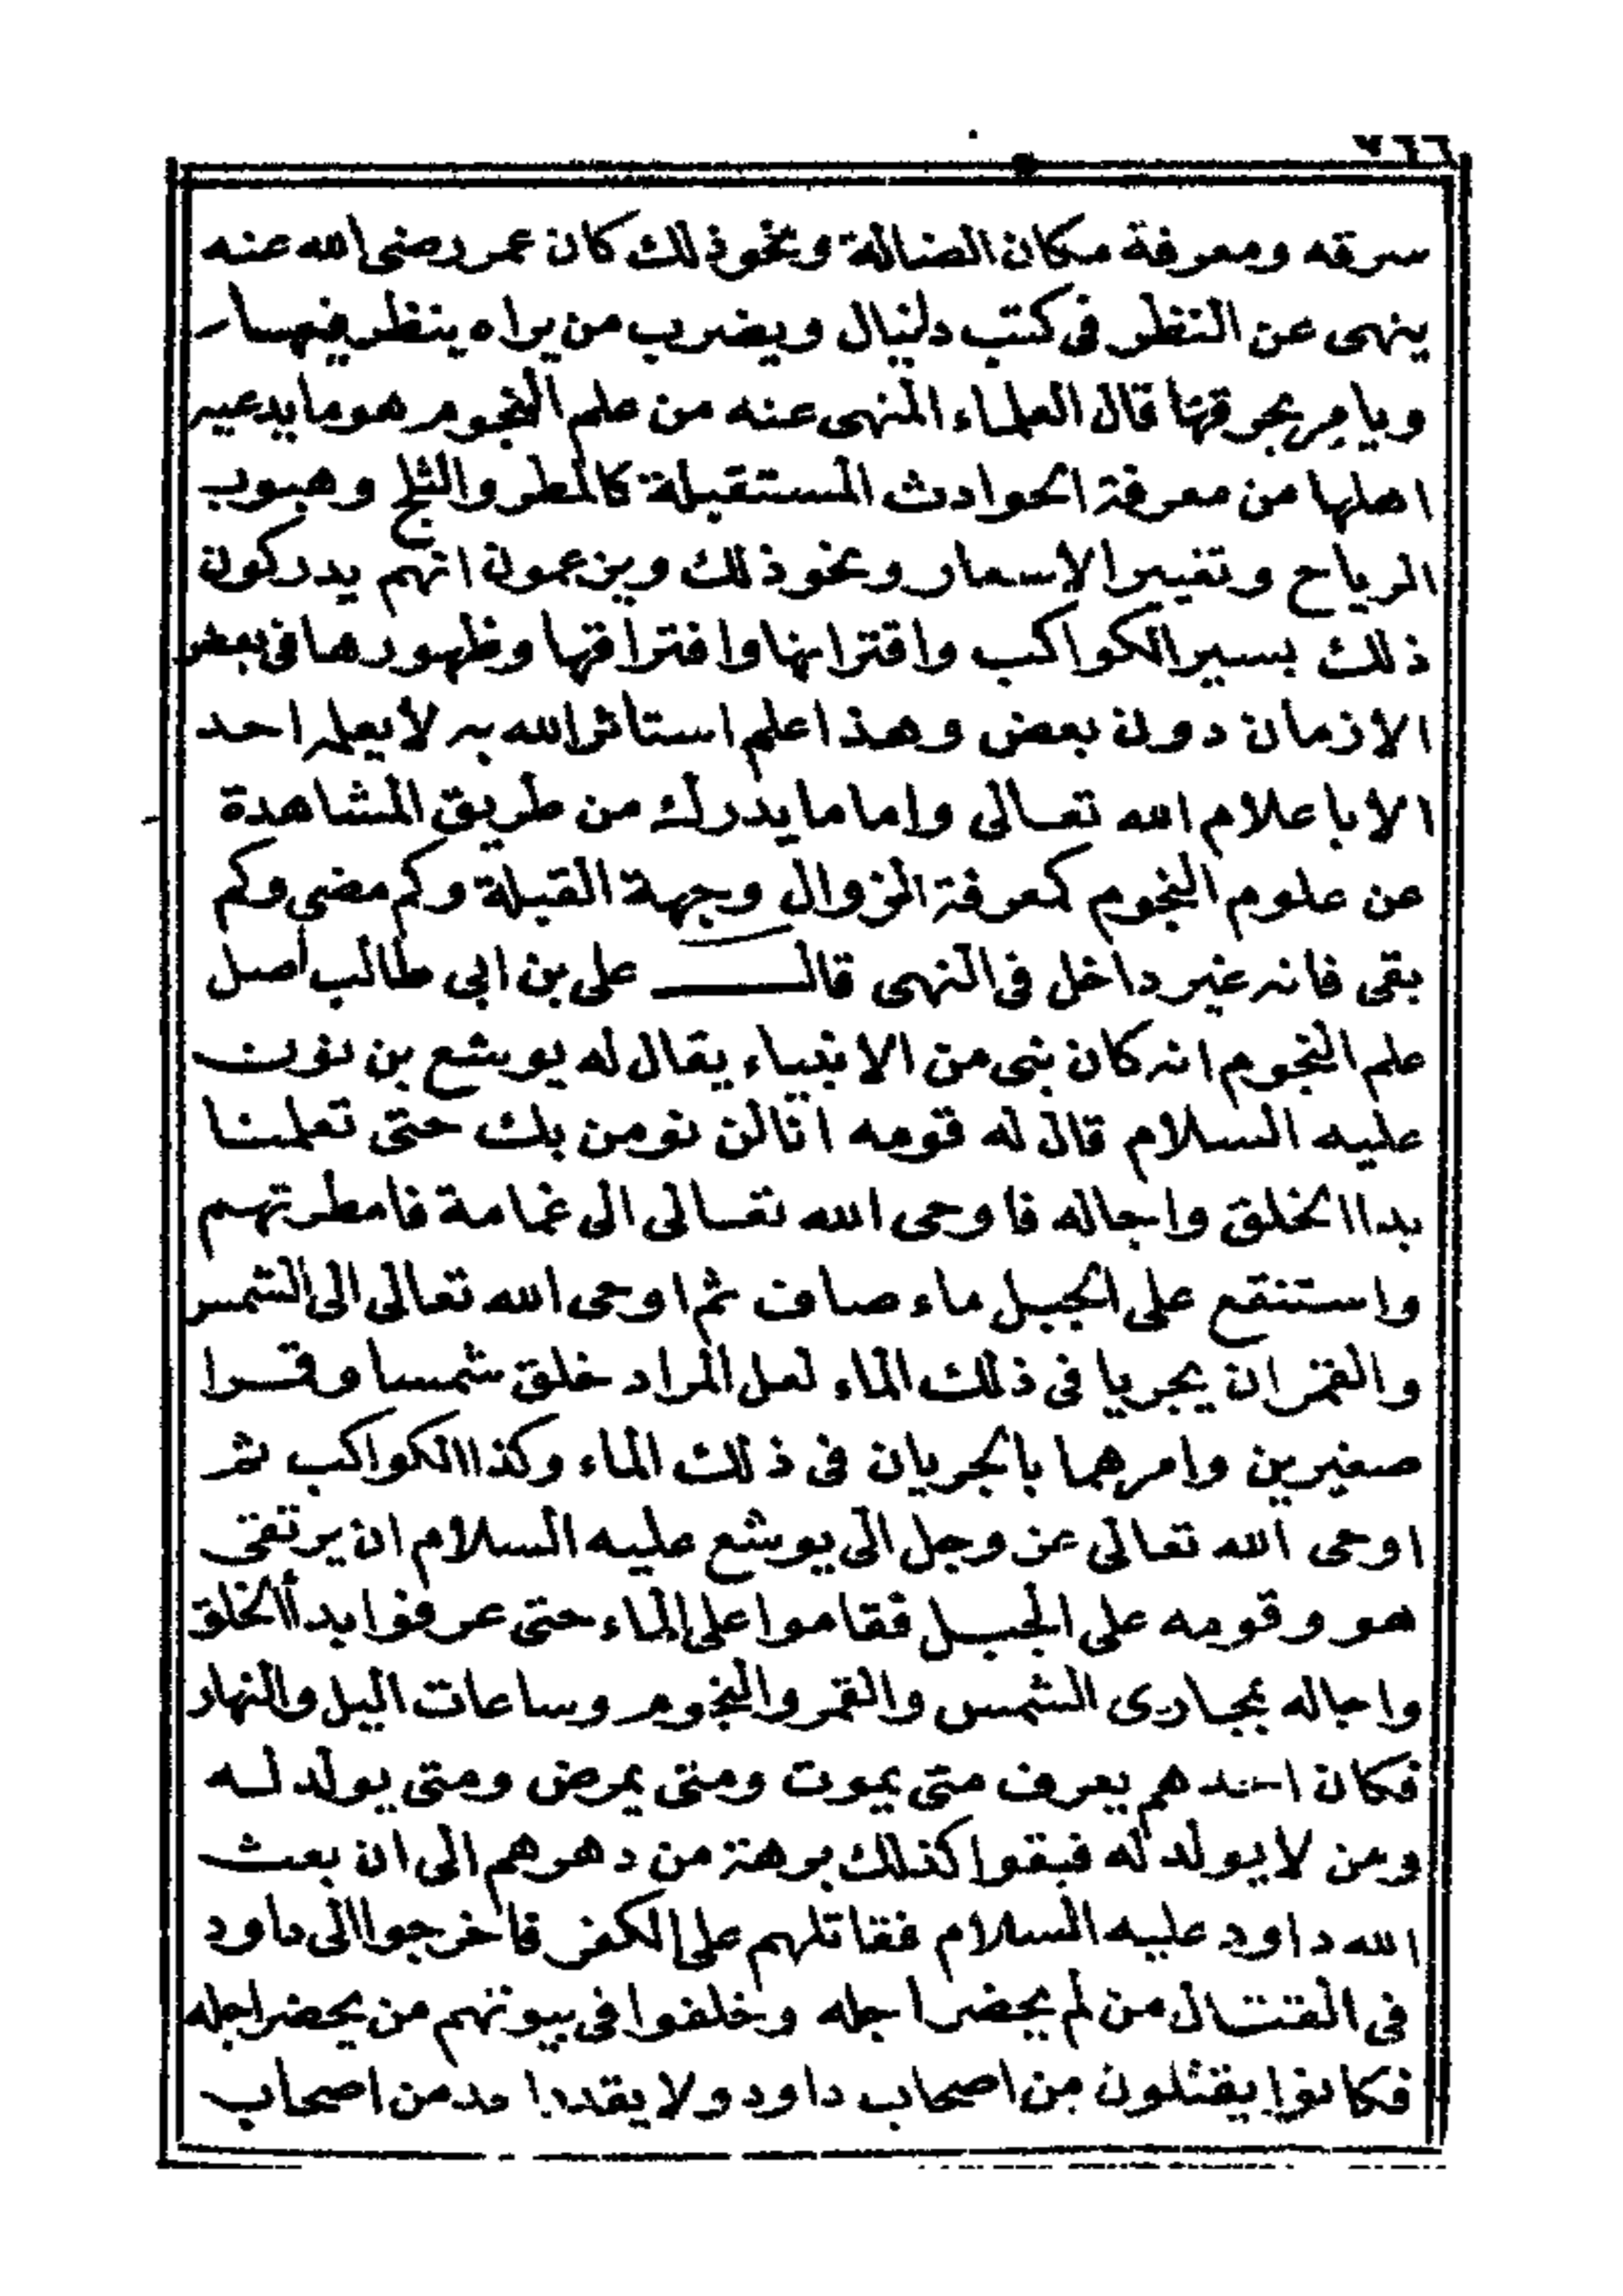 سرقه ومعرفة مكان الضالة ونحوذلك كان عمر رضى الله عنه
ينهى عن النظر فى كتب دانيال ويضرب من يراه ينظر فيها
ويامر بحرقها قال العلماء المنهى عنه من علم النجوم هو ما يدعيه
اهلها من معرفة الحوادث المستقبلة كالمطر والثلج وهبوب
الرياح وتغيير الاسعار ونحوذلك ويزعمون انهم يدركون
ذلك بسير الكواكب واقترانها وافتراقها وظهورها فى بعض
الازمان دون بعض وهذا علم استاثر الله به لا يعلمه احد
الا باعلام الله تعالى واما ما يدرك من طريق المشاهدة
عن علوم النجوم كمعرفة الزوال وجهة القبلة وكم مضى وكم
بقى فانه غير داخل فى النهى قال على بن ابى طالب اصل
علم النجوم انه كان نبى من الانبياء يقال له يوشع بن نون
عليه السلام قال له قومه انا لن نومن بك حتى تعلمنا
بدا الخلق واجاله فاوحى الله تعالى الى غمامة فامطرتهم
واستنقع على الجبل ماء صاف ثم اوحى الله تعالى الى الشمس
والقمر ان يجريا فى ذلك الماء لعل المراد خلق شمسا وقمرا
صغيرين وامرهما بالجريان فى ذلك الماء وكذا الكواكب ثم
اوحى الله تعالى عز وجل الى يوشع عليه السلام ان يرتقى
هو وقومه على الجبل فقاموا على الماء حتى عرفوا بدأ الخلق
واجاله بمجارى الشمس والقمر والنجوم وساعات اليل والنهار
فكان احدهم يعرف متى يموت ومتى يمرض ومتى يولد له
ومن لا يولد له فبقوا كذلك برهة من دهرهم الى ان بعث
الله داود عليه السلام فقاتلهم على الكفر فاخرجوا الى داود
فى القتال من لم يحضر اجله وخلفوا فى بيوتهم من يحضر اجله
فكانوا يقتلون من اصحاب داود ولا يقدر احد من اصحاب